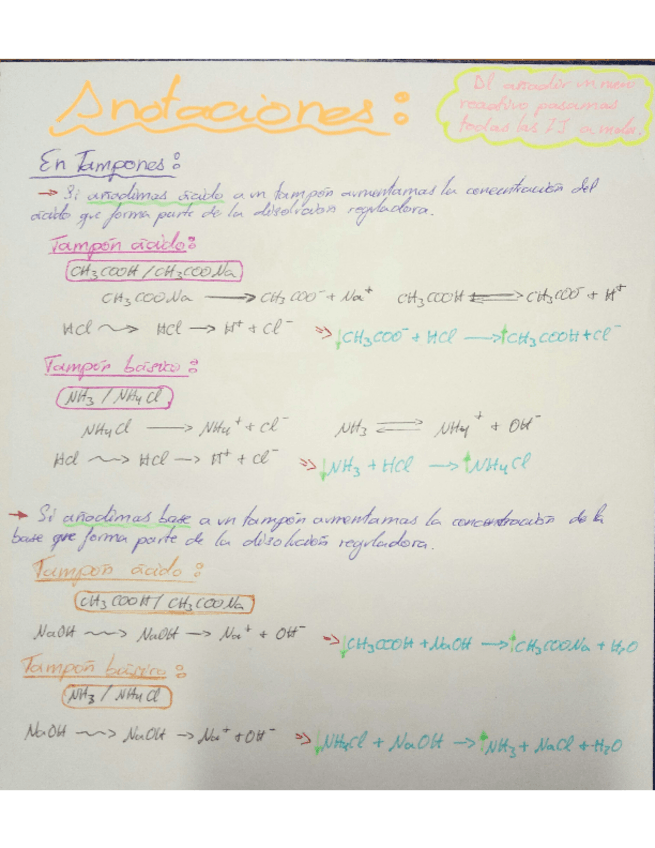 Anotaciones:
Al añadir un nuevo
reactivo pasamos
todas las [ ] a moles.
En Tampones:
→ Si añadimos ácido a un tampón aumentamos la concentración del
ácido que forma parte de la disolución reguladora.
Tampón ácido:
CH₃COOH / CH₃COONa
CH₃COONa ⟶ CH₃COO⁻ + Na⁺ CH₃COOH ⇌ CH₃COO⁻ + H⁺
HCl ⇝ HCl → H⁺ + Cl⁻ ⇒ ↓CH₃COO⁻ + HCl ⟶ ↑CH₃COOH + Cl⁻
Tampón básico:
NH₃ / NH₄Cl
NH₄Cl ⟶ NH₄⁺ + Cl⁻ NH₃ ⇌ NH₄⁺ + OH⁻
HCl ⇝ HCl → H⁺ + Cl⁻ ⇒ ↓NH₃ + HCl ⟶ ↑NH₄Cl
→ Si añadimos base a un tampón aumentamos la concentración de la
base que forma parte de la disolución reguladora.
Tampón ácido:
CH₃COOH / CH₃COONa
NaOH ⇝ NaOH → Na⁺ + OH⁻ ⇒ ↓CH₃COOH + NaOH ⟶ ↑CH₃COONa + H₂O
Tampón básico:
NH₃ / NH₄Cl
NaOH ⇝ NaOH → Na⁺ + OH⁻ ⇒ ↓NH₄Cl + NaOH → ↑NH₃ + NaCl + H₂O